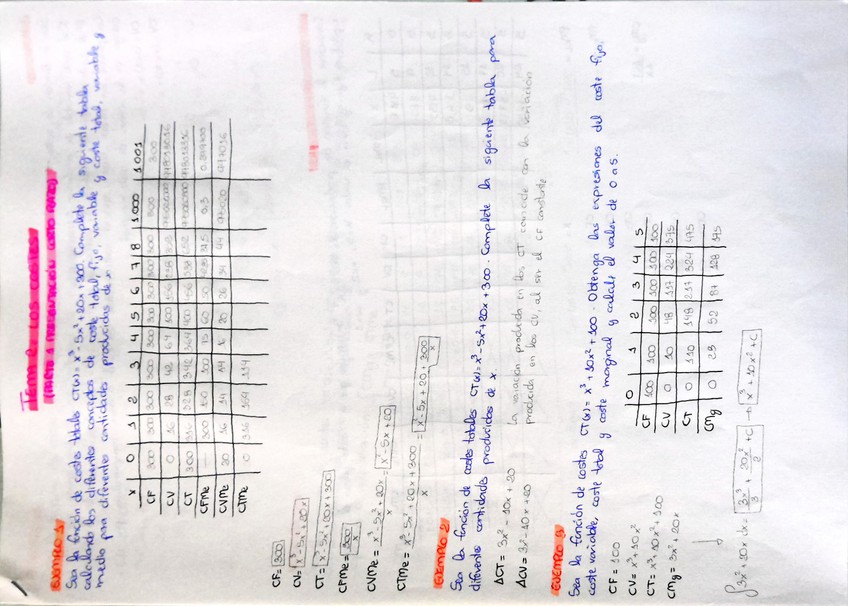 TEMA 2: LOS COSTES
EJEMPLO 1:
Sea la función de costes totales CT(x) = x³ - 5x² + 20x + 300. Complete la siguiente tabla
calculando los diferentes conceptos de coste total, fijo, variable y coste total, variable y
medio para diferentes cantidades producidas de x.
x 0 1 2 3 4 5 6 7 8 1000 1001
CF 300 300 300 300 300 300 300 300 300 300 300
CV 0 16 28 42 64
CT 300 316 328 342 364 400
CFMe — 300 150 100 75 60 50 37,5 0,3
CVMe 20 16 14 14 16 20 26 34 44
CTMe 0 316 164 114
CF = 300
CV = x³ - 5x² + 20x
CT = x³ - 5x² + 20x + 300
CFMe = 300/x
CVMe = x³ - 5x² + 20x / x = x² - 5x + 20
CTMe = x³ - 5x² + 20x + 300 / x = x² - 5x + 20 + 300/x
EJEMPLO 2:
Sea la función de costes totales CT(x) = x³ - 5x² + 20x + 300. Complete la siguiente tabla para
diferentes cantidades producidas de x.
ΔCT = 3x² - 10x + 20
ΔCV = 3x² - 10x + 20
la variación producida en los CT coincide con la variación
producida en los CV, al ser el CF constante
EJEMPLO 3:
Sea la función de costes CT(x) = x³ + 10x² + 100. Obtenga las expresiones del coste fijo,
coste variable, coste total y coste marginal y calcule el valor de 0 a 5.
CF = 100
CV = x³ + 10x²
CT = x³ + 10x² + 100
CMg = 3x² + 20x
0 1 2 3 4 5
CF 100 100 100 100 100 100
CV 0 10 48 117 224 375
CT 0 110 148 217 324 475
CMg 0 23 52 87 128 175
∫3x² + 20x dx = 3x³/3 + 20x²/2 + C → x³ + 10x² + C